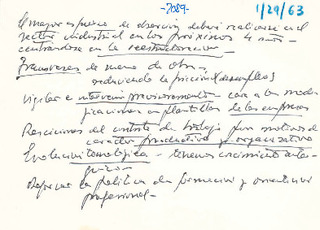 -7089-
1/29/63
El mayor esfuerzo de absorción deberá realizarse en el
sector industrial en los próximos 4 años
centrándose en la reestructuración
Trasvases de mano de obra
reduciendo la fricción (desempleo)
Vigilar e intervenir provisionalmente cara a las modi-
ficaciones en plantillas de las empresas
Rescisiones del contrato de trabajo por motivos de
carácter productivo y organizativo
Evolución tecnológica - tenemos crecimiento
Reforzar la política de formación y orientación
profesional -